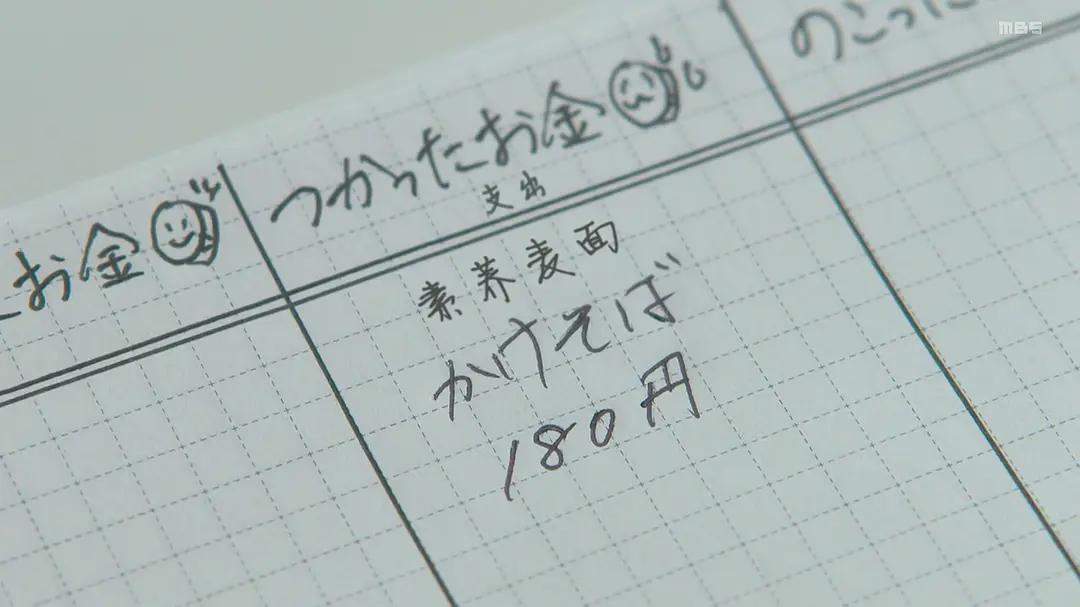 MBS
お金
つかったお金
のこった
支出
素荞麦面
かけそば
180円